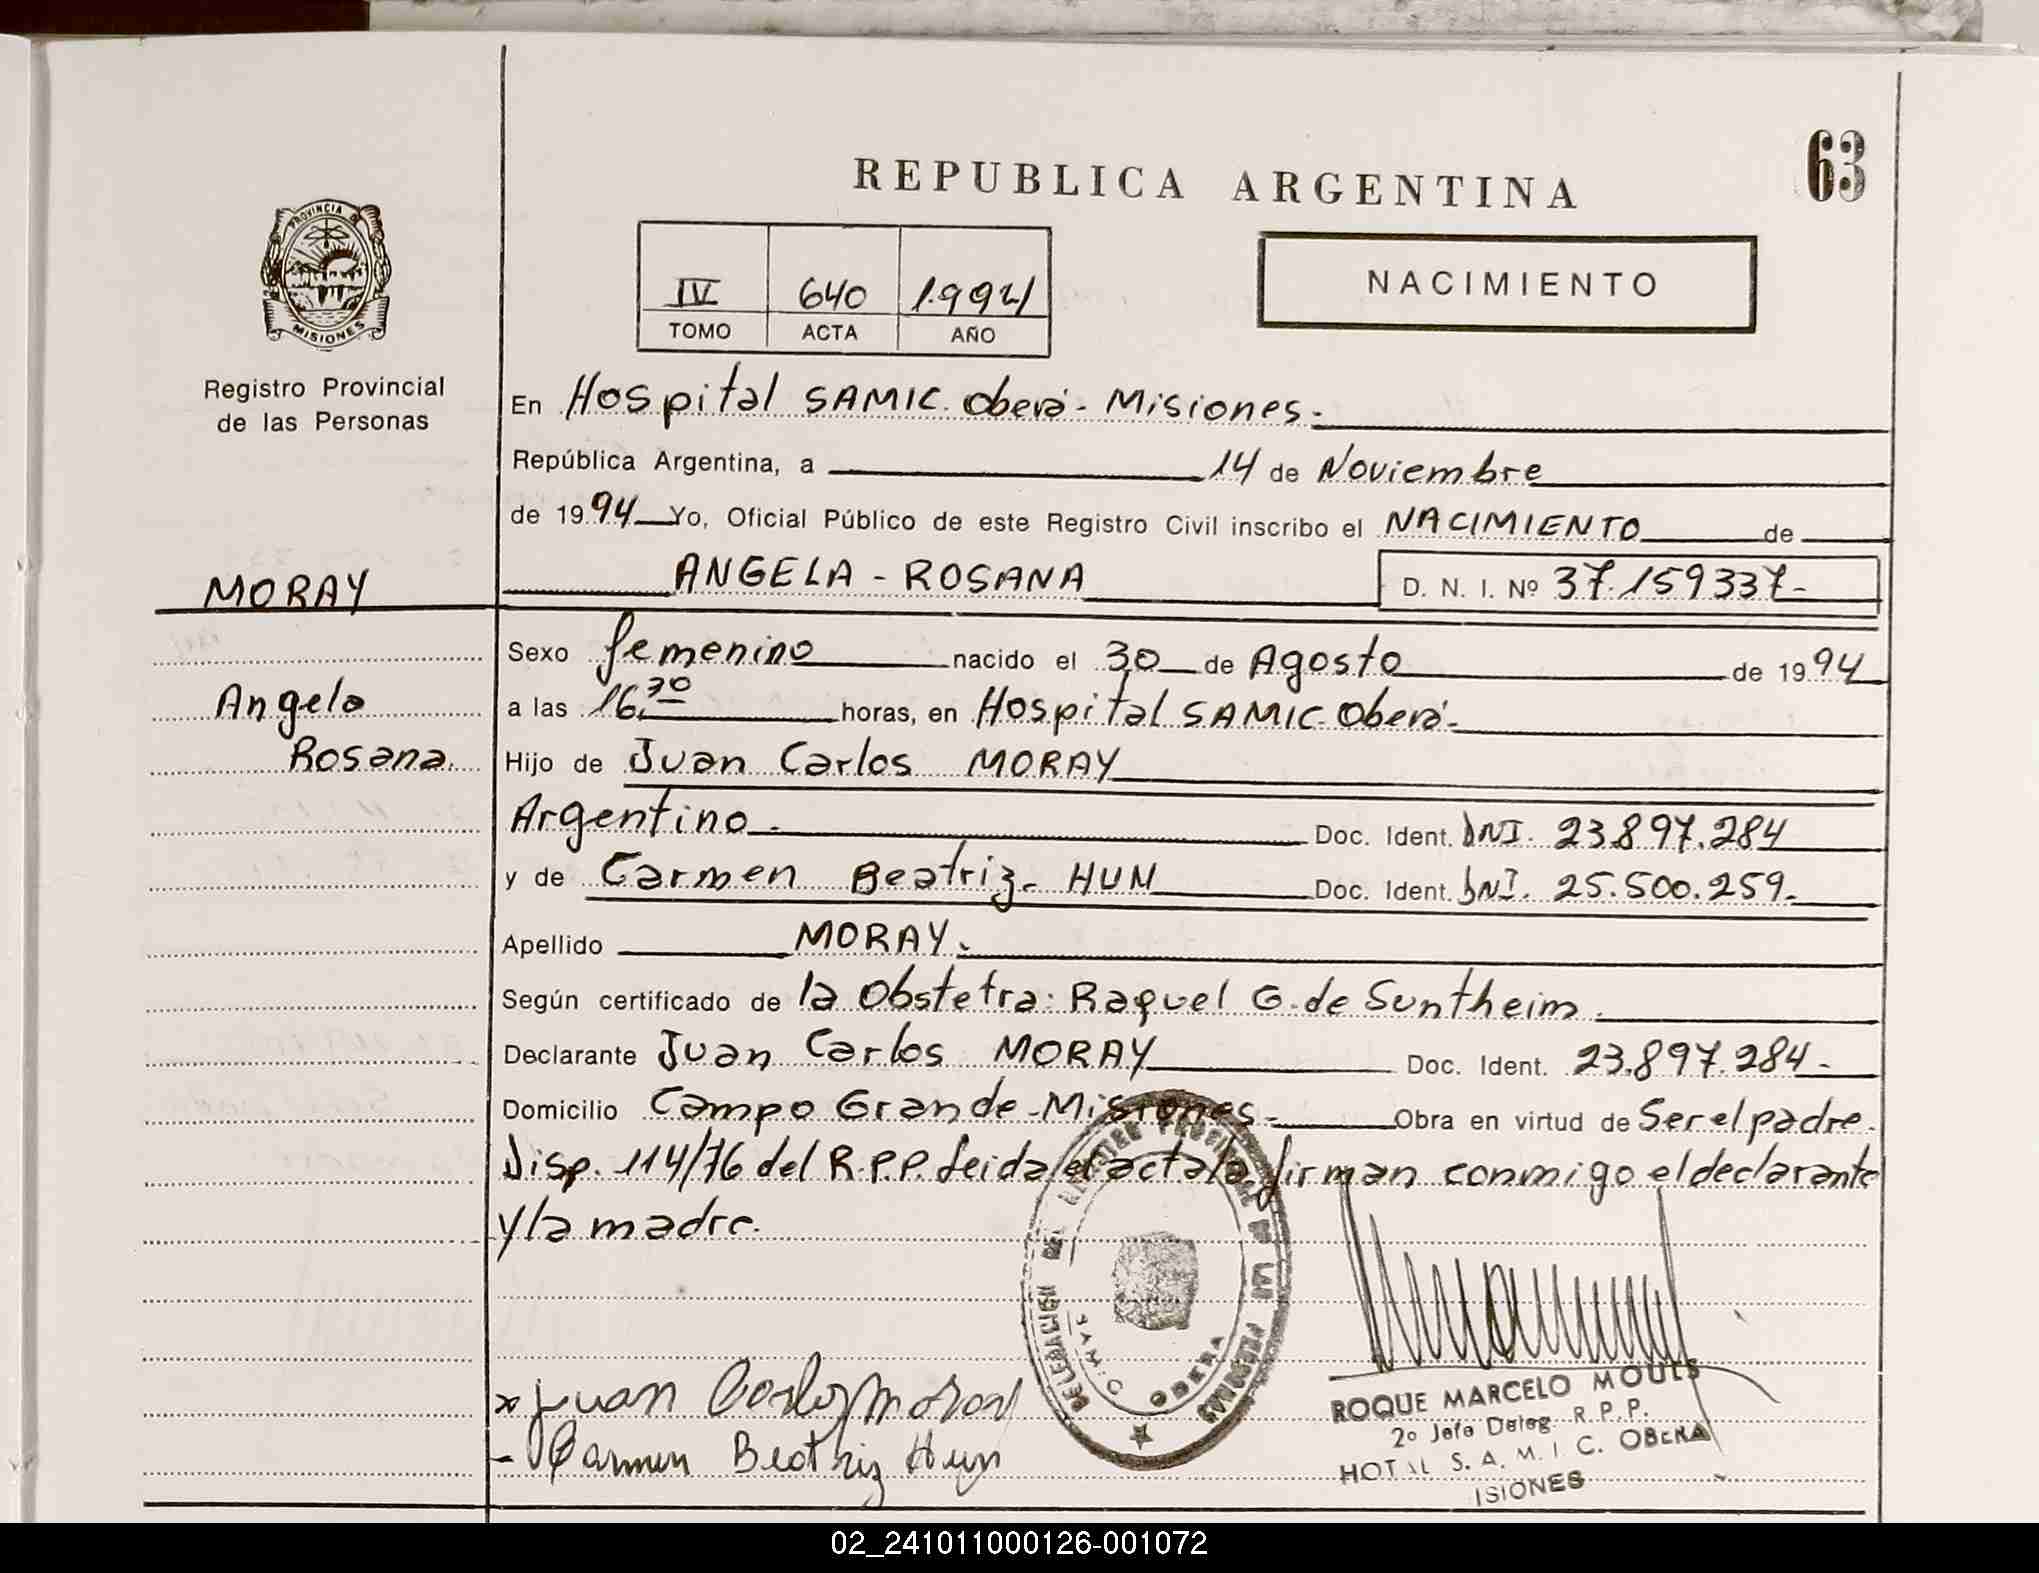 REPUBLICA ARGENTINA
63
PROVINCIA DE
MISIONES
Registro Provincial
de las Personas
IV 640 1.994
TOMO ACTA AÑO
NACIMIENTO
En Hospital SAMIC. Oberá - Misiones.-
República Argentina, a 14 de Noviembre
de 1994 Yo, Oficial Público de este Registro Civil inscribo el NACIMIENTO de
MORAY
ANGELA - ROSANA D. N. I. Nº 37.159337-
Sexo femenino nacido el 30 de Agosto de 1994
Angela
a las 16.30 horas, en Hospital SAMIC. Oberá.-
Rosana.
Hijo de Juan Carlos MORAY
Argentino.- Doc. Ident. DNI. 23.897.284
y de Carmen Beatriz. HUN Doc. Ident. DNI. 25.500.259.-
Apellido MORAY.
Según certificado de la Obstetra: Raquel G. de Suntheim.
Declarante Juan Carlos MORAY Doc. Ident. 23.897.284-
Domicilio Campo Grande - Misiones.- Obra en virtud de Ser el padre.
Disp. 114/76 del R.P.P. Leida el acta la firman conmigo el declarante
y la madre.
DELEGACION DEL REGISTRO PROVINCIAL DE LAS PERSONAS
SAMIC
OBERA
x Juan Carlos Moray
- Carmen Beatriz Hun
ROQUE MARCELO MOULS
2º Jefe Deleg. R.P.P.
HOT AL S. A. M. I C. OBERA
ISIONES
02_241011000126-001072